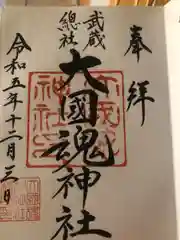 奉拝
武蔵
總社
大國魂神社
令和五年十二月三日